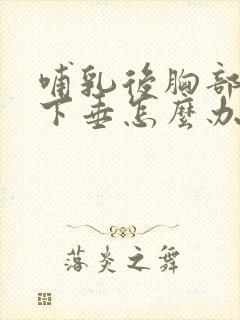 哺乳後胸部
下垂怎麼办
落炎之舞